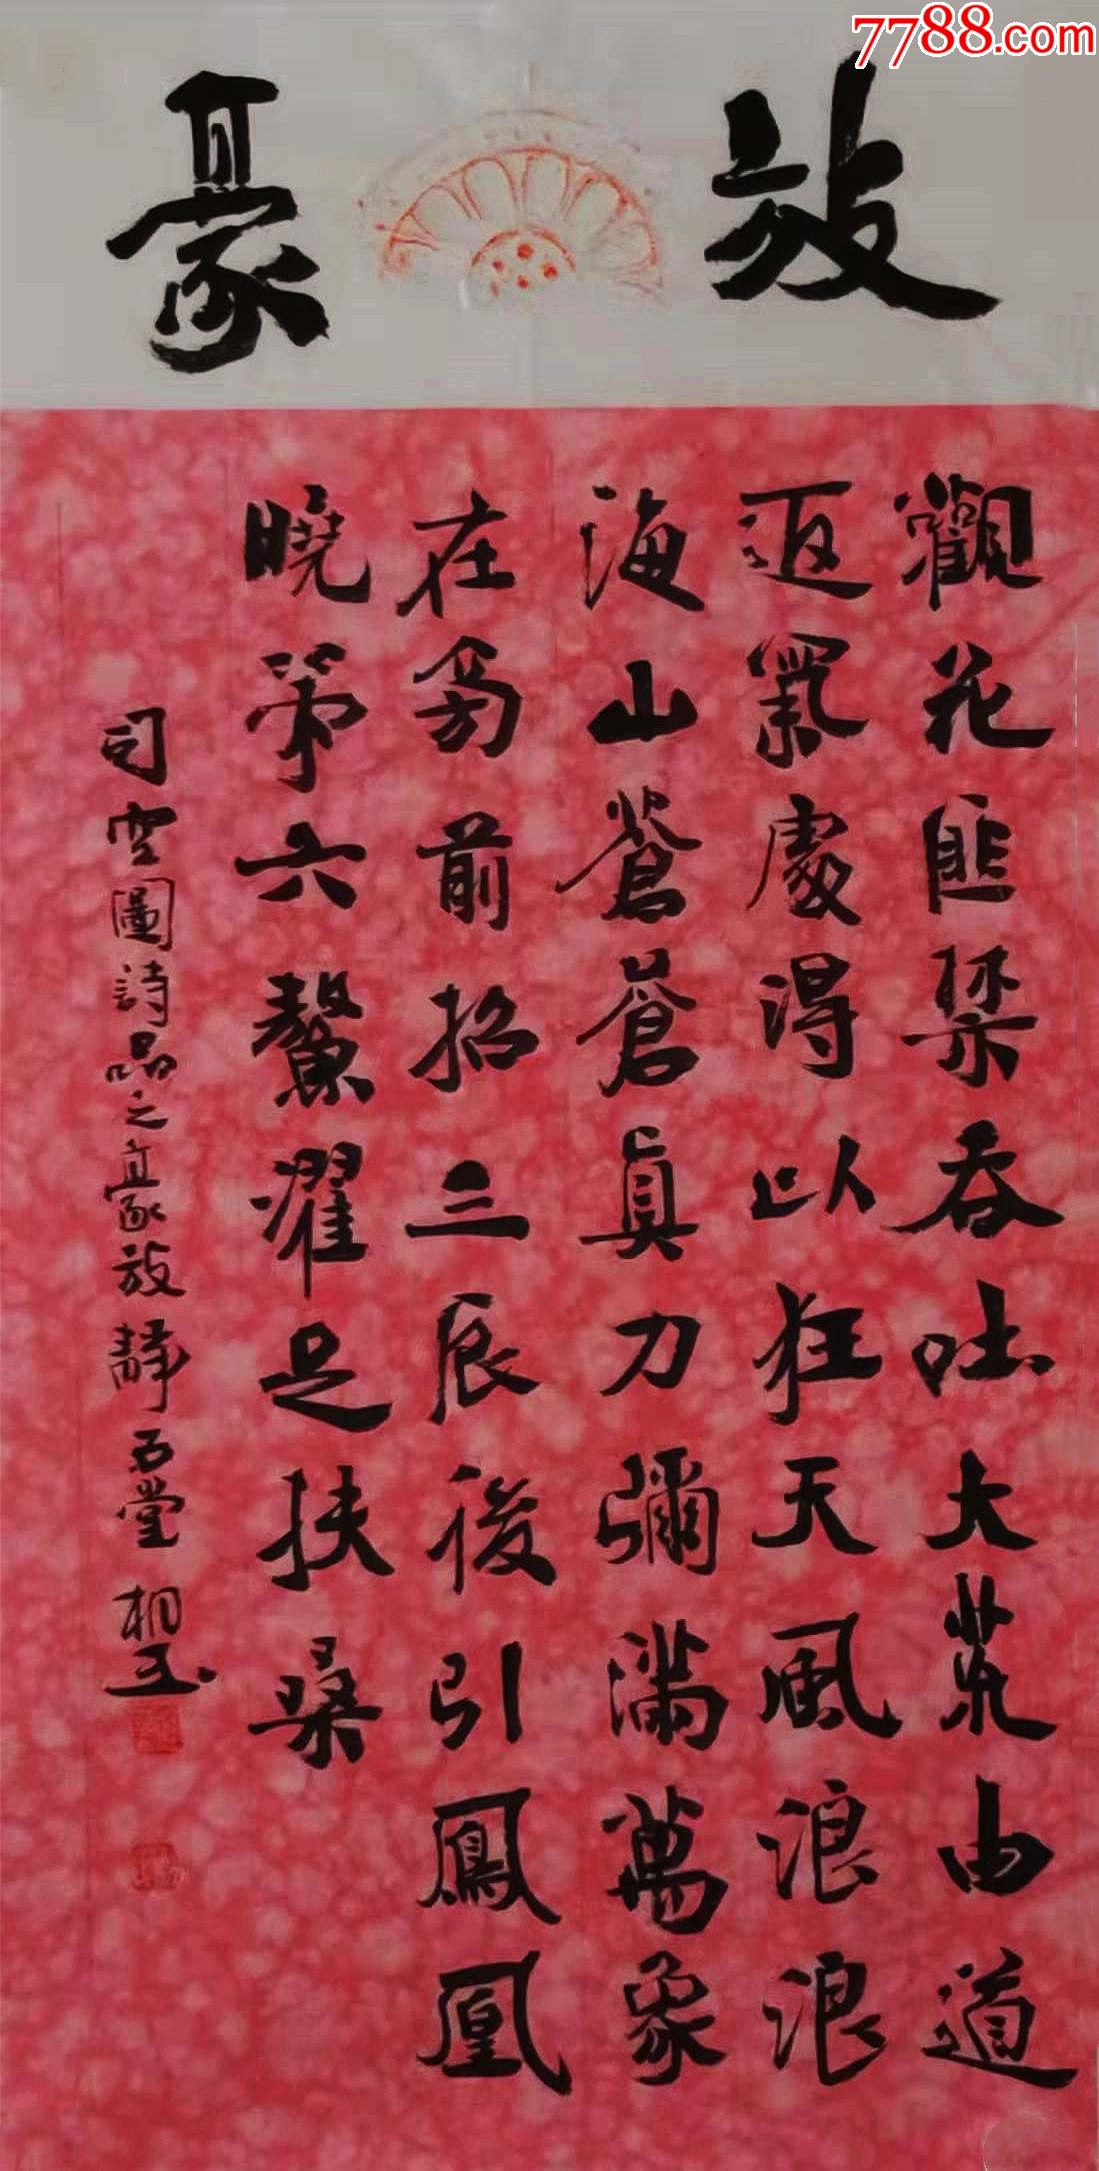 7788.com
豪放
觀花匪禁吞吐大荒由道
返氣處得以狂天風浪浪
海山蒼蒼眞力彌滿萬象
在旁前招三辰後引鳳凰
曉策六鰲濯足扶桑
司空圖詩品之豪放靜石堂